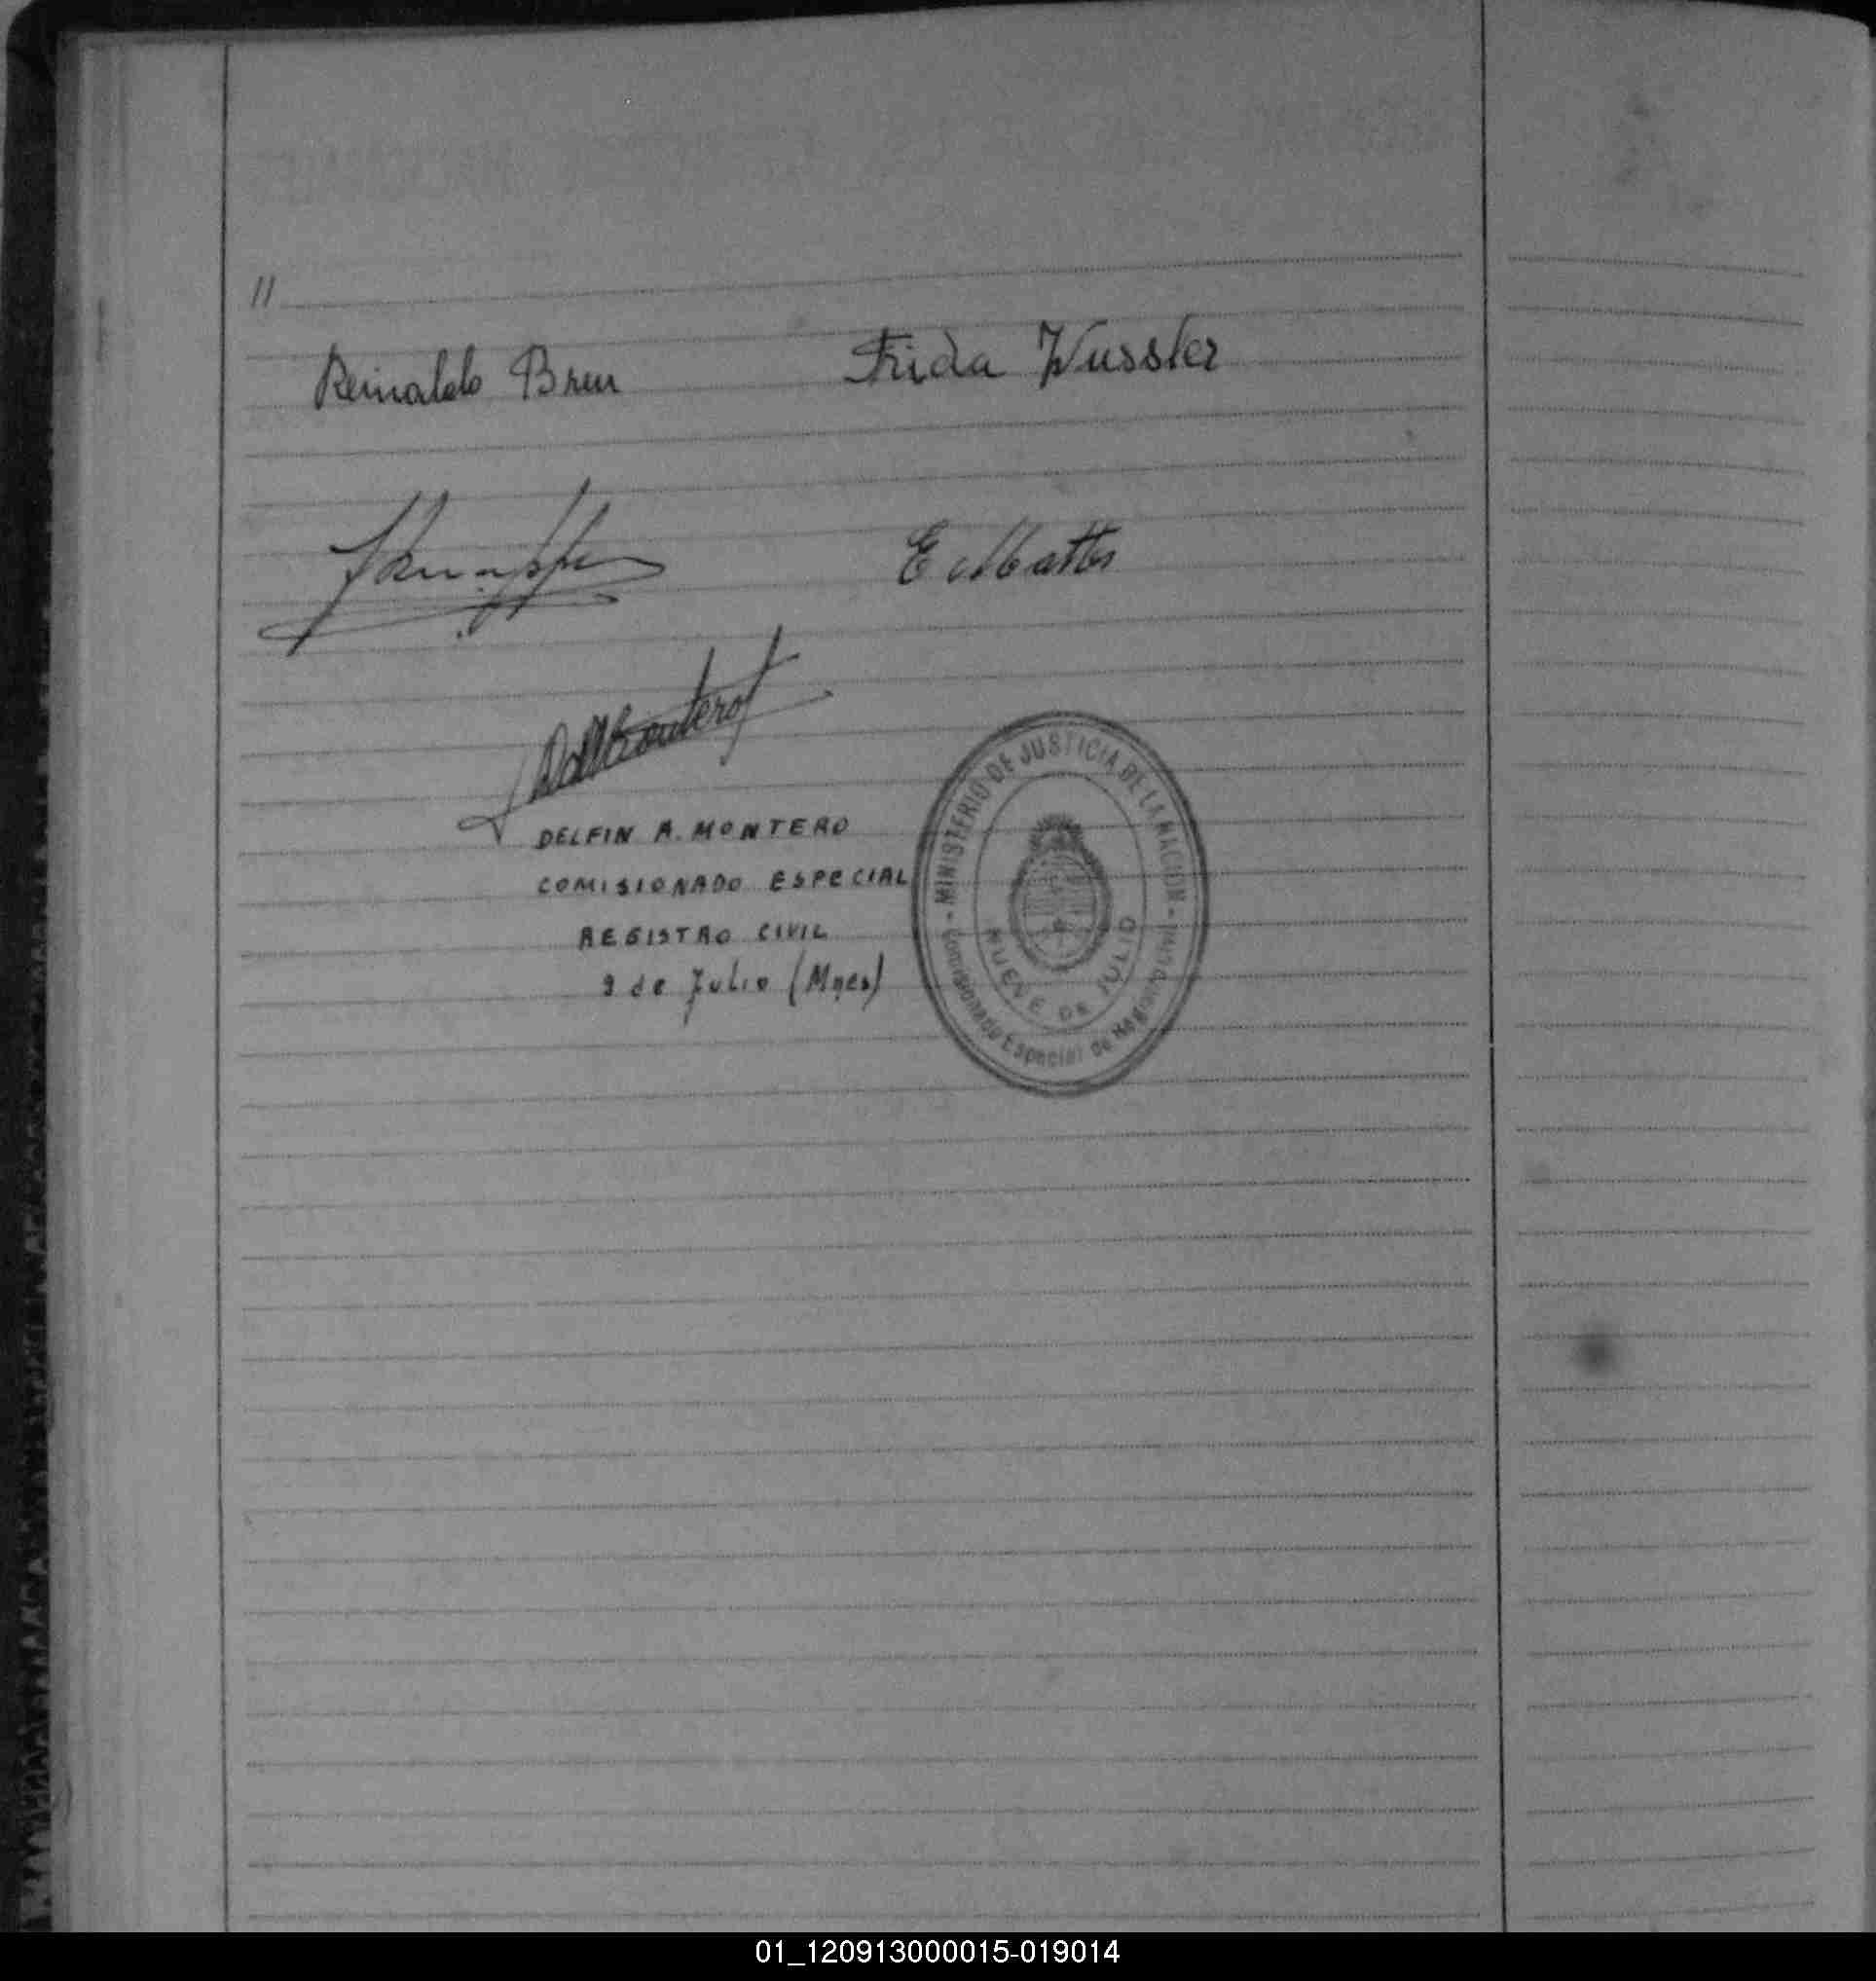 //
Reinaldo Breu Frida Wussler
E Mattes
DELFIN A. MONTERO
COMISIONADO ESPECIAL
REGISTRO CIVIL
9 de Julio (Mnes)
- MINISTERIO DE JUSTICIA DE LA NACION -
Comisionado Especial de Registro Civil
NUEVE DE JULIO
01_120913000015-019014